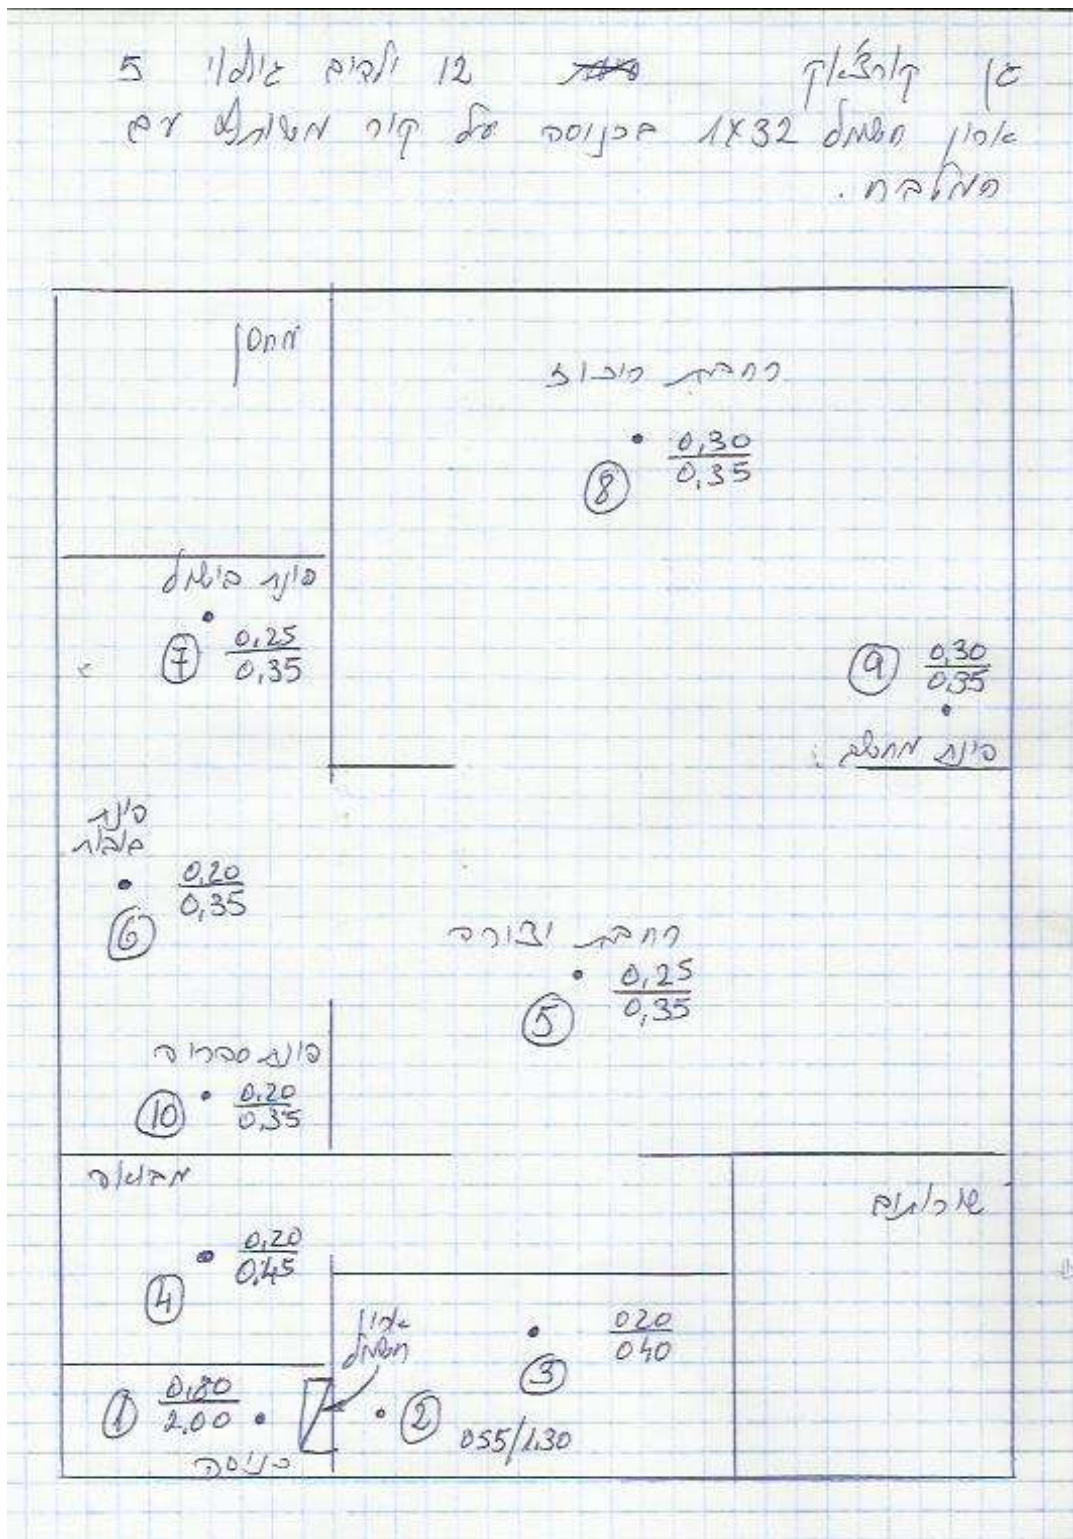 גן קורצ'אק 12 ילדים גילאי 5
ארון חשמל 1X32 בכניסה על קיר משותף עם
המטבח.
מחסן
רחבת ריכוז
0,30
0,35
8
פינת בישול
7
0,25
0,35
9
0,30
0,35
פינת מחשב
פינת
בובות
0,20
0,35
6
רחבת יצירה
0,25
0,35
5
פינת ספריה
10
0,20
0,35
מבואה
שירותים
0,20
0,45
4
ארון
חשמל
020
040
3
1
0,80
2,00
2
055/1.30
כניסה